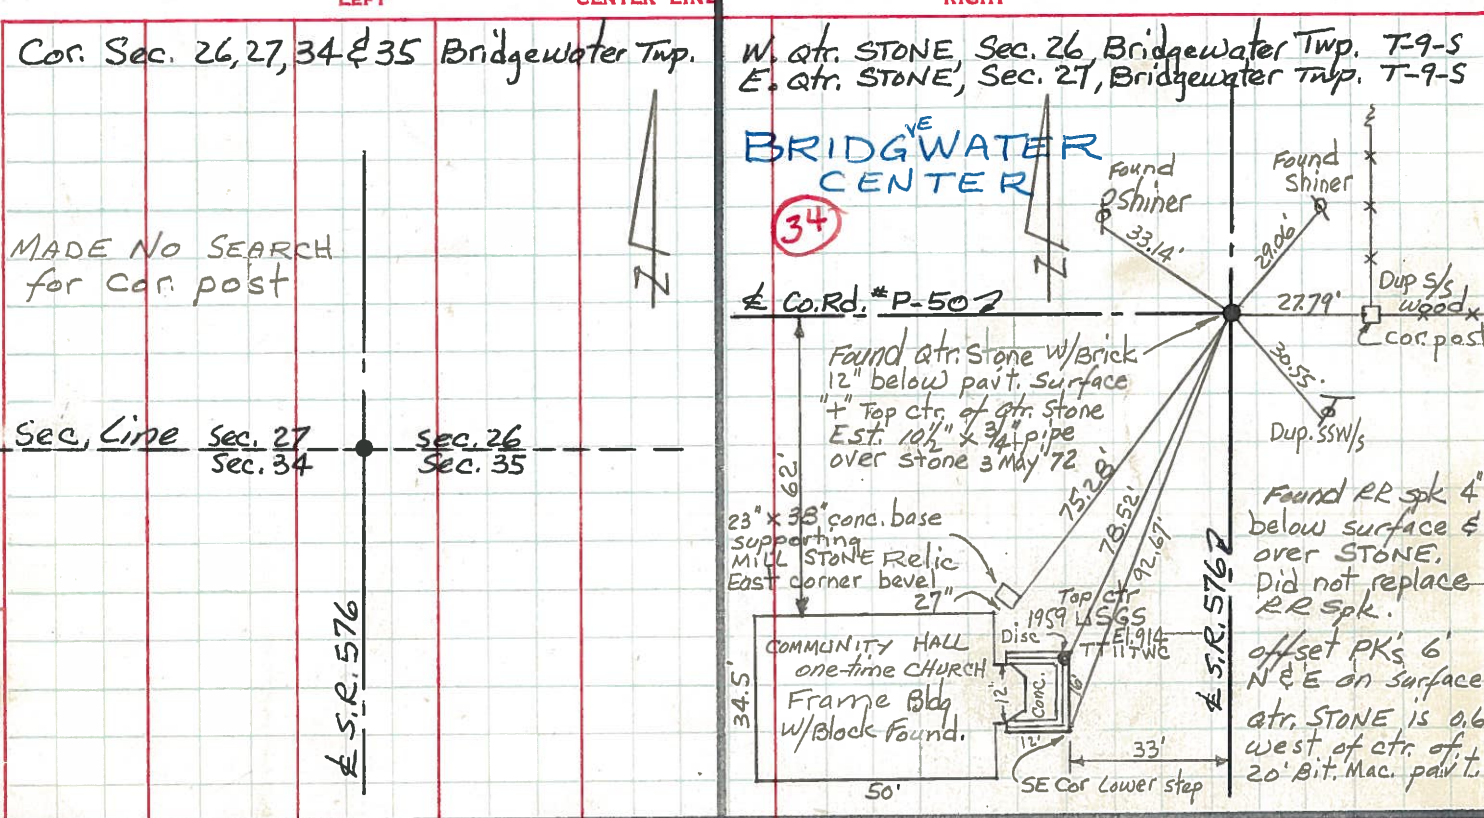 LEFT
CENTER LINE
RIGHT
Cor. Sec. 26, 27, 34 & 35 Bridgewater Twp.
MADE NO SEARCH
for Cor. post
N
Sec. Line
Sec. 27
Sec. 34
Sec. 26
Sec. 35
℄ S.R. 576
W. Qtr. STONE, Sec. 26, Bridgewater Twp. T-9-S
E. Qtr. STONE, Sec. 27, Bridgewater Twp. T-9-S
VE
BRIDGWATER
CENTER
34
N
Found
Shiner
33.14'
Found
Shiner
29.06'
℄ Co. Rd. #P-50
27.79'
Dup S/S
wood
Cor. post
30.55'
Dup. SSW/S
Found Qtr. Stone W/Brick
12" below pav't. Surface
"+" Top ctr. of qtr. Stone
Est. 10½" x ¾" pipe
over Stone 3 May '72
62'
75.28'
78.52'
92.67'
23" x 38" conc. base
supporting
MILL STONE Relic
East corner bevel
27"
Top ctr
1959 USGS
Disc
El. 914
TT 11 TWC
COMMUNITY HALL
one-time CHURCH
Frame Bldg
W/Block Found.
34.5'
50'
12"
Conc.
16'
12'
33'
SE Cor Lower step
℄ S.R. 576
Found RR spk 4"
below surface &
over STONE.
Did not replace
RR spk.
offset PK's 6'
N & E on surface
Qtr. STONE is 0.6
west of ctr. of
20' Bit. Mac. pav't.